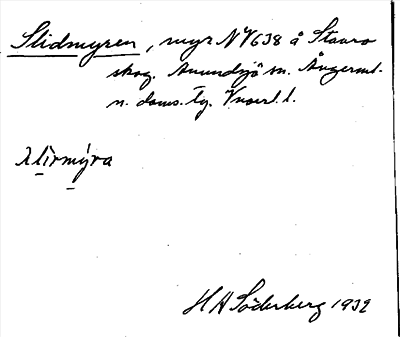 Slidmyren, myr NV638 å Stavro
skog. Anundsjö sn. Ångerml.
n. doms. tg. Vnorrl. l.
Söderberg 1932